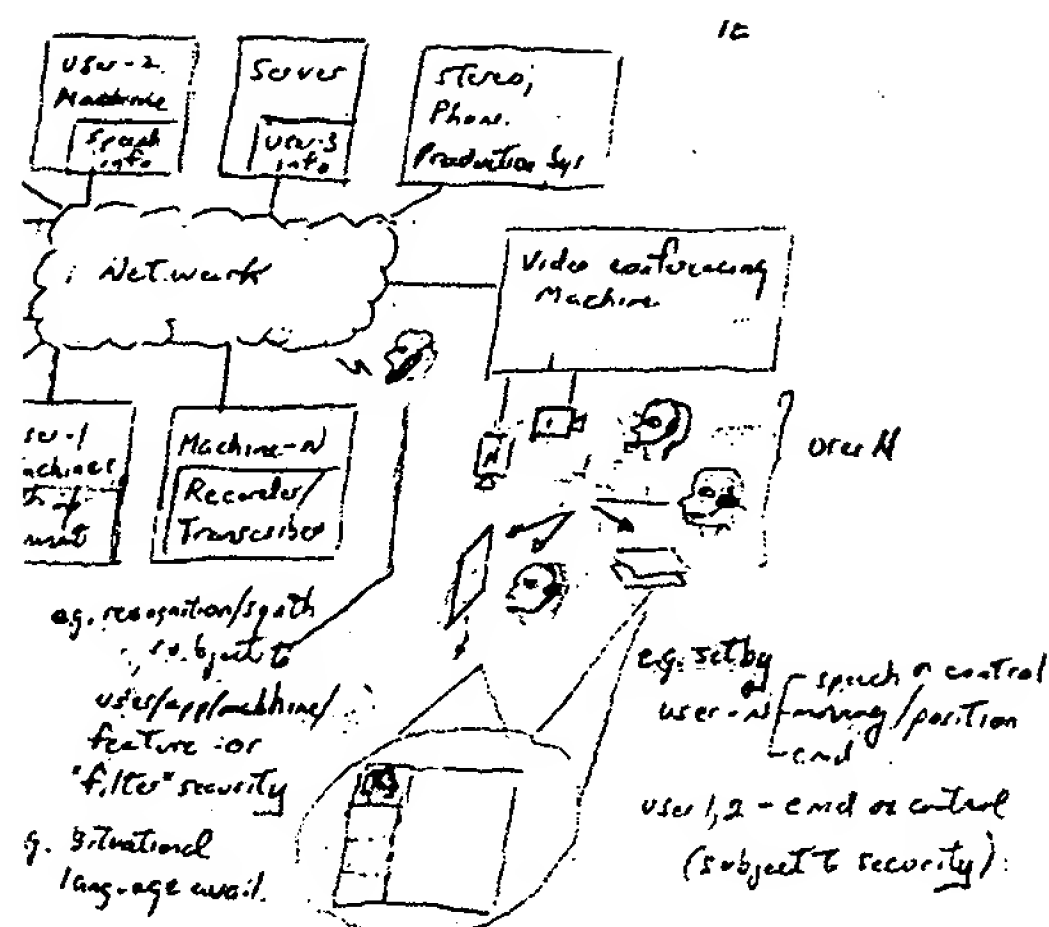 User-2
Machine
Speech
info
Server
User-3
info
Stereo,
Phone.
Production Sys
Network
Video conferencing
Machine
Machine-N
Recorder/
Transcriber
User N
N
e.g. recognition/synth
subject to
user/app/machine/
feature or
"filter" security
g. situational
language avail.
e.g. set by
user-N
speech or control
moving/position
cmd
user 1,2 - cmd or control
(subject to security)